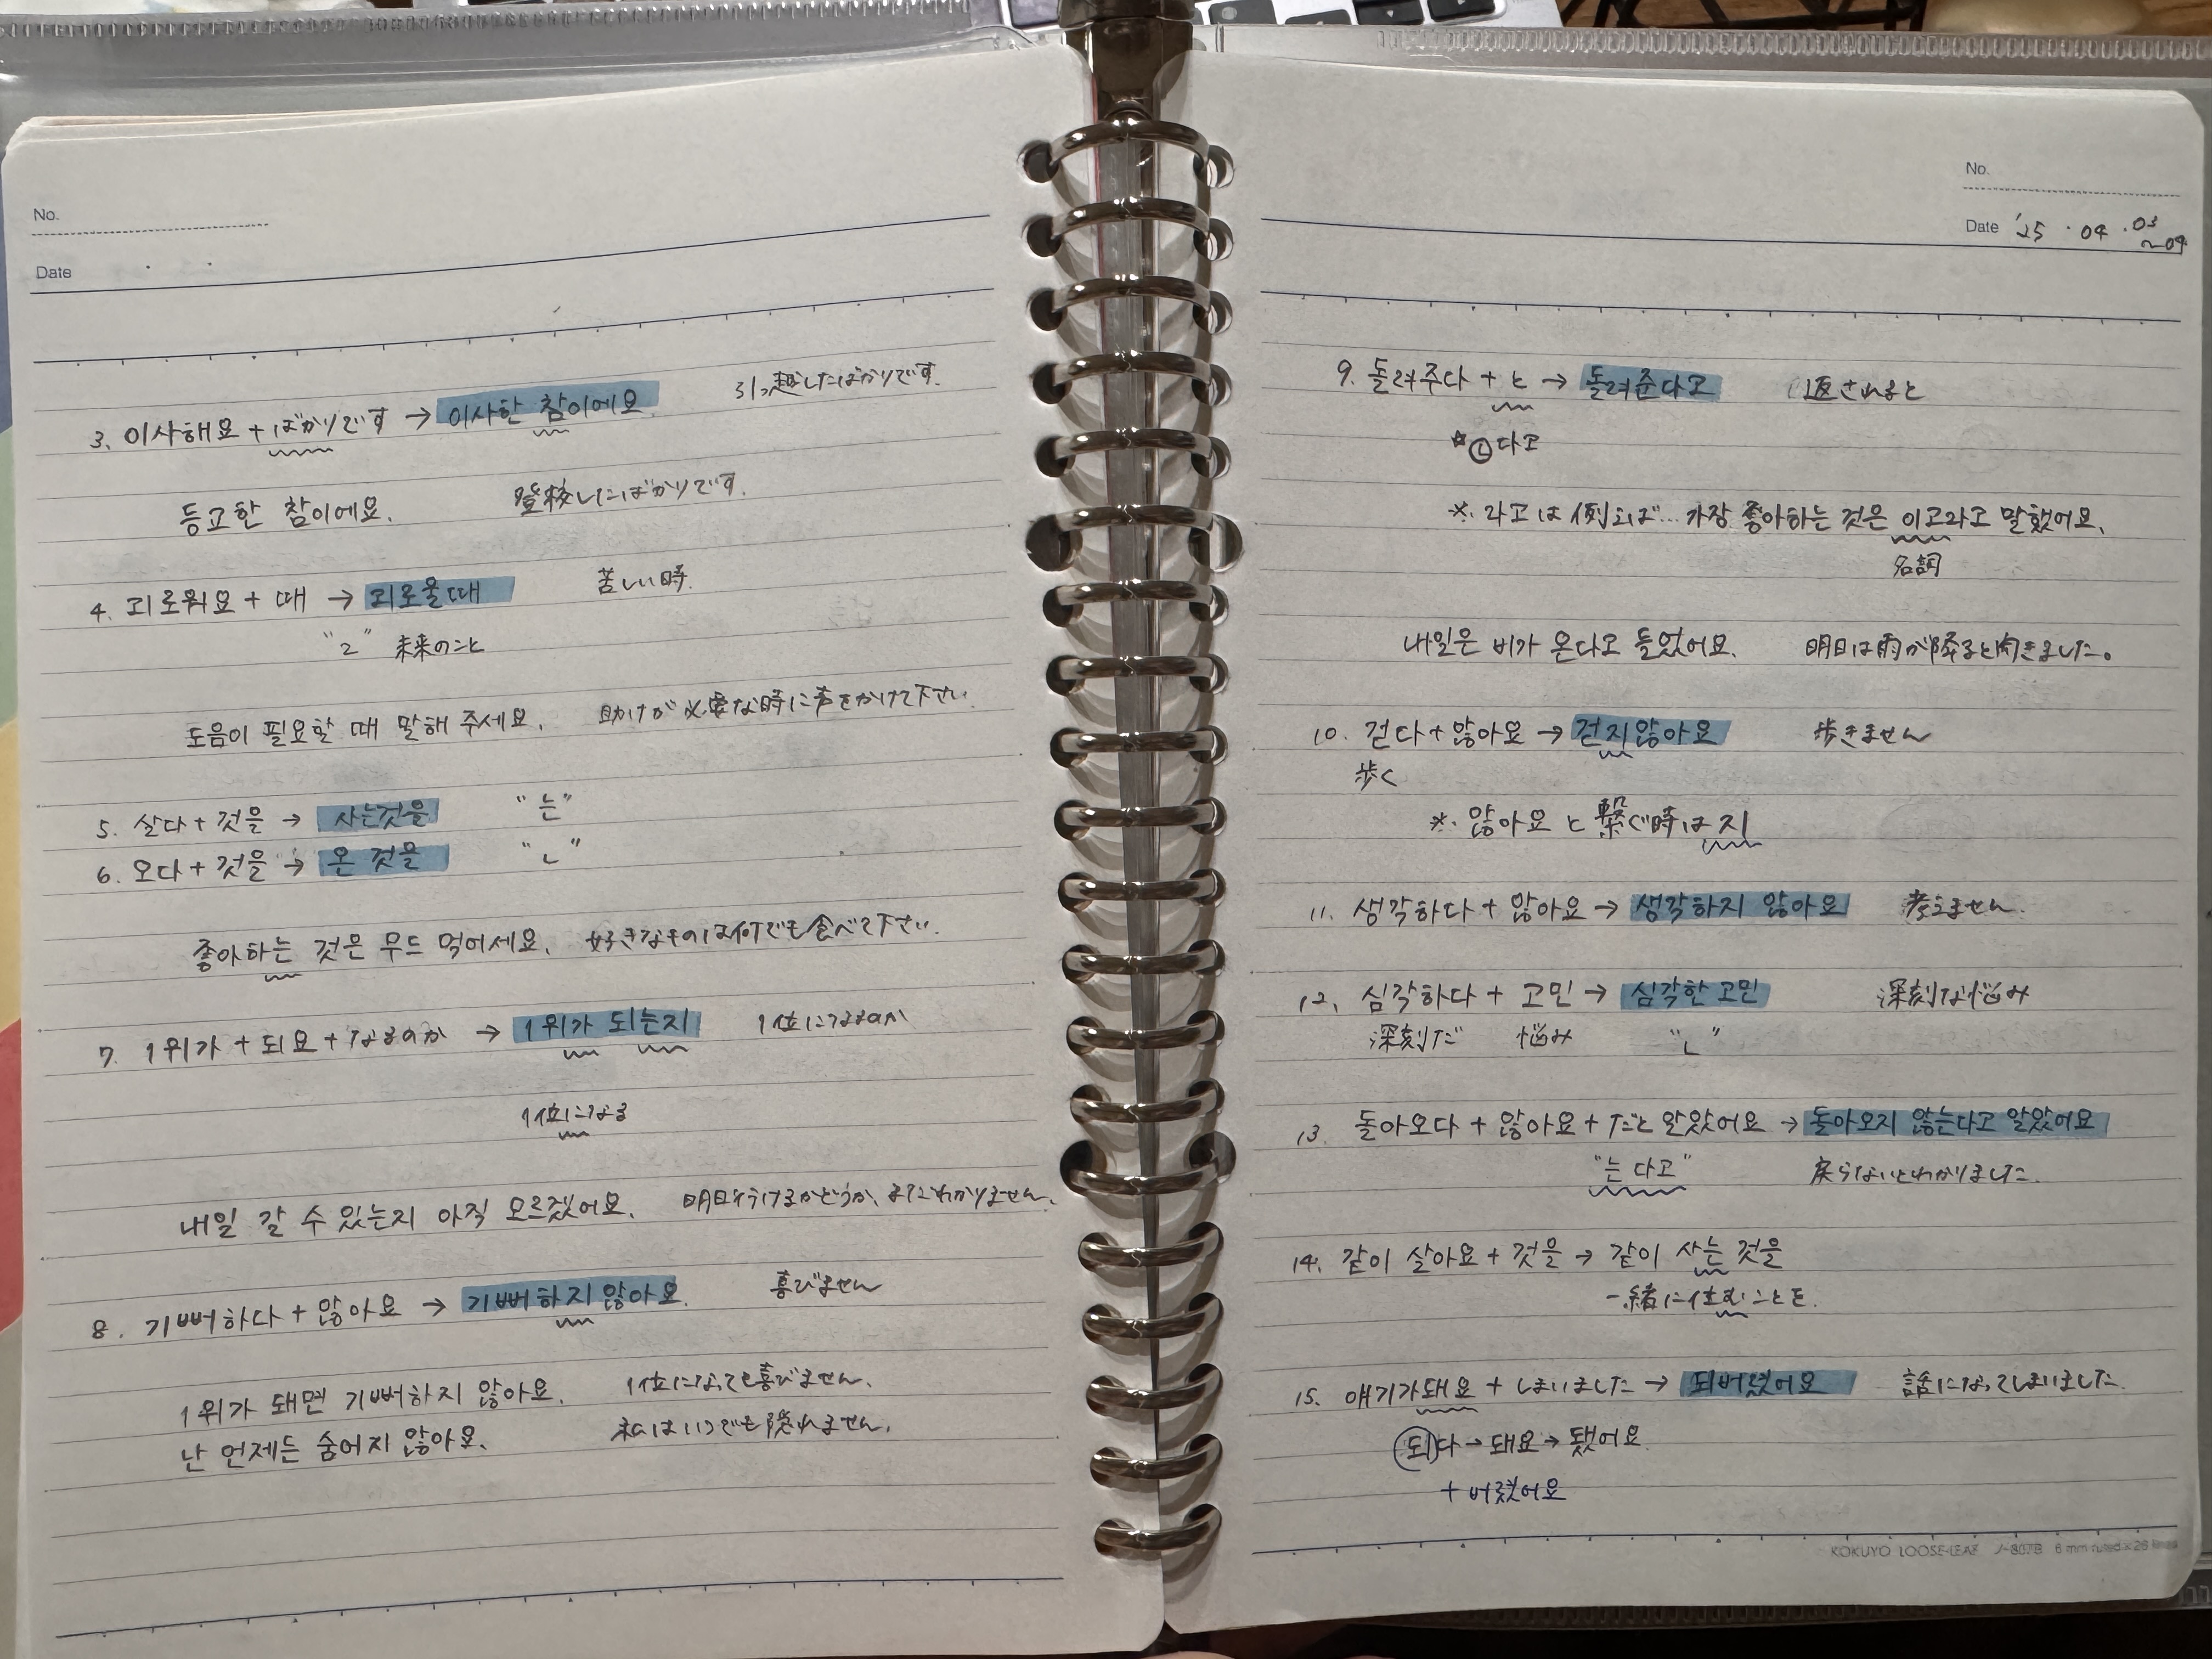 No.
Date
3. 이사해요 + ばかりです → 이사한 참이에요 引っ越したばかりです.
등교한 참이에요. 登校したばかりです.
4. 괴로워요 + 때 → 괴로울때 苦しい時.
"ㄹ" 未来のこと
도음이 필요할 때 말해 주세요. 助けが必要な時に声をかけて下さい.
5. 살다 + 것을 → 사는것을 "는"
6. 오다 + 것을 → 온 것을 "ㄴ"
좋아하는 것은 무드 먹어세요. 好きなものは何でも食べて下さい.
7. 1위가 + 되요 + なるのか → 1위가 되는지 1位になるのか
1位になる
내일 갈 수 있는지 아직 모르겠어요. 明日行けるかどうか、まだわかりません.
8. 기뻐하다 + 않아요 → 기뻐하지 않아요. 喜びません
1위가 돼면 기뻐하지 않아요. 1位になっても喜びません.
난 언제든 숨어지 않아요. 私はいつでも隠れません.
No.
Date '25 · 04 · 03 ~04
9. 돌려주다 + と → 돌려준다고 返されると
*ㄴ다고
※. 라고は例えば… 가장 좋아하는 것은 이고라고 말했어요.
名詞
내일은 비가 온다고 들었어요. 明日は雨が降ると聞きました。
10. 걷다 + 않아요 → 걷지않아요 歩きません
歩く
※. 않아요 と繋ぐ時は지
11. 생각하다 + 않아요 → 생각하지 않아요 考えません.
12. 심각하다 + 고민 → 심각한 고민 深刻な悩み
深刻だ 悩み "ㄴ"
13. 돌아오다 + 않아요 + だと 알았어요 → 돌아오지 않는다고 알았어요
"는 다고" 戻らないとわかりました.
14. 같이 살아요 + 것을 → 같이 사는 것을
一緒に住むことを.
15. 얘기가돼요 + しまいました → 되버렸어요 話になってしまいました.
되다 → 돼요 → 됐어요
+ 버렸어요
KOKUYO LOOSE-LEAF ノ-807B 6 mm ruled × 26 lines